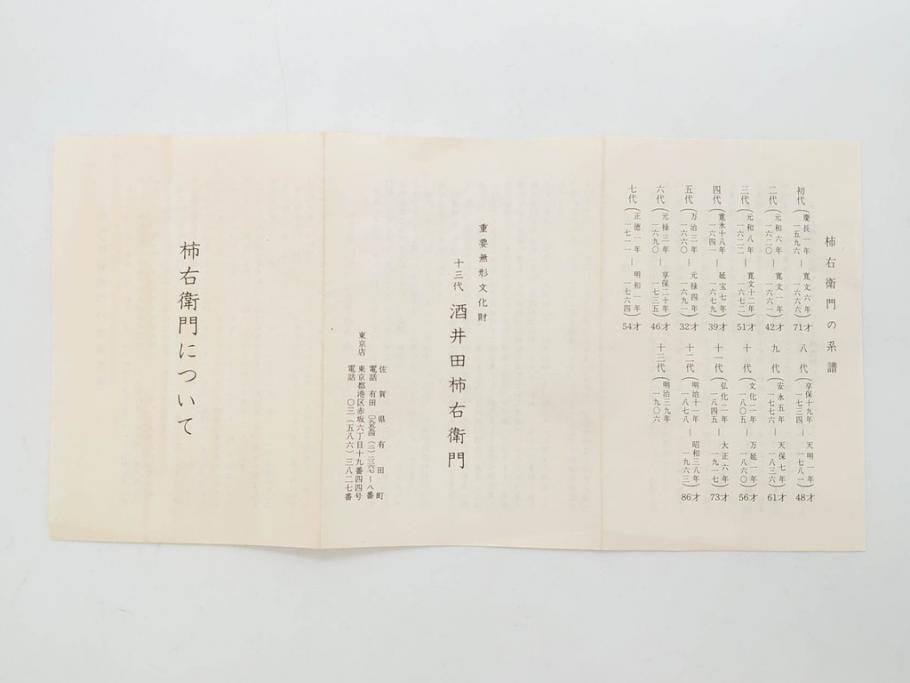 柿右衛門の系譜
初代(慶長一年 一五九六 — 寛文六年 一六六六)71才
二代(元和六年 一六二〇 — 寛文一年 一六六一)42才
三代(元和八年 一六二二 — 寛文十二年 一六七二)51才
四代(寛永十八年 一六四一 — 延宝七年 一六七九)39才
五代(万治三年 一六六〇 — 元禄四年 一六九一)32才
六代(元禄三年 一六九〇 — 享保二十年 一七三五)46才
七代(正徳一年 一七一一 — 明和一年 一七六四)54才
八代(享保十九年 一七三四 — 天明一年 一七八一)48才
九代(安永五年 一七七六 — 天保七年 一八三六)61才
十代(文化二年 一八〇五 — 万延一年 一八六〇)56才
十一代(弘化二年 一八四五 — 大正六年 一九一七)73才
十二代(明治十一年 一八七八 — 昭和三八年 一九六三)86才
十三代(明治三九年 一九〇六
重要無形文化財
十三代 酒井田柿右衛門
佐賀県有田町
電話 有田
東京店 東京都港区赤坂六丁目十九番四四号
電話 〇三(五八六)三八二七番
柿右衛門について